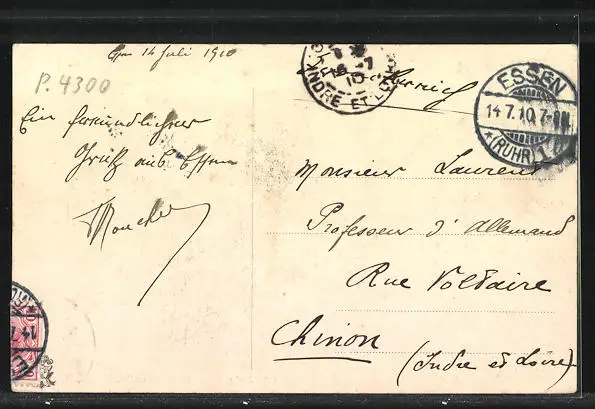 14 Juli 1910
P. 4300
Ein freundlicher
Gruß aus Essen
INDRE ET LOIRE
ESSEN
14.7.10.7-8N.
*(RUHR)1
Monsieur Laurent
Professeur d'Allemand
Rue Voltaire
Chinon
(Indre et Loire)